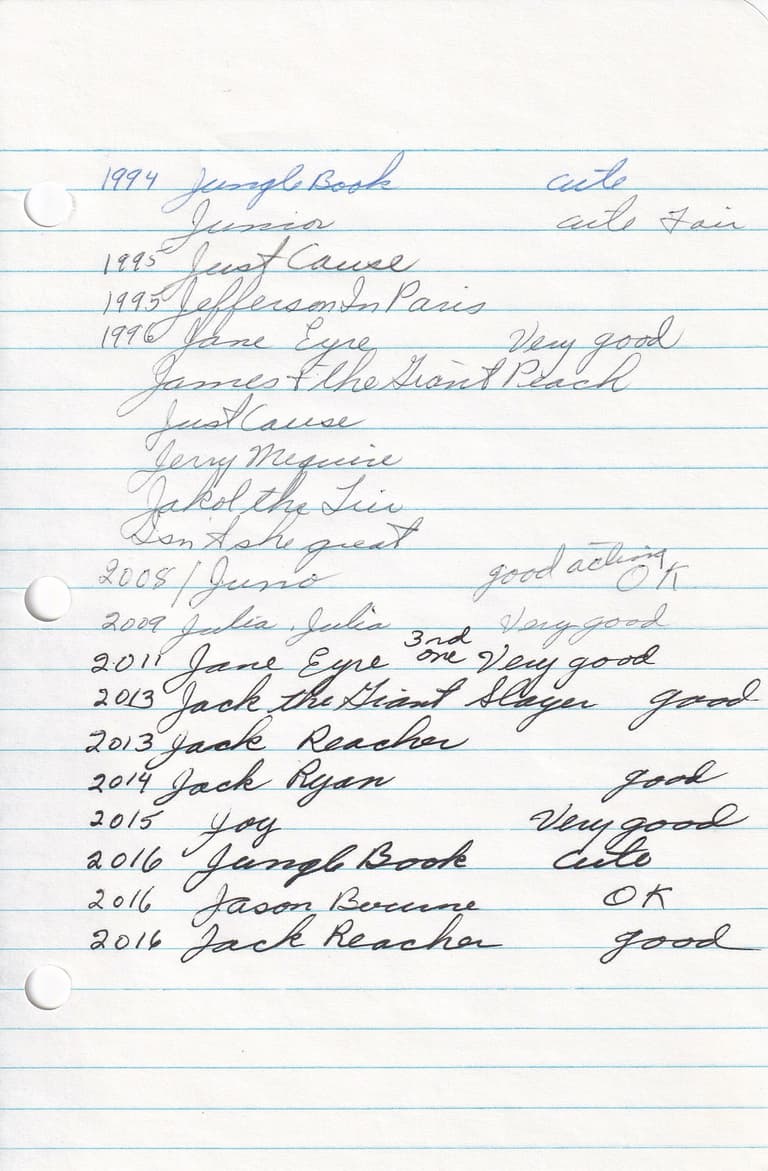 1994 Jungle Book cute
Junior cute Fair
1995 Just Cause
1995 Jefferson In Paris
1996 Jane Eyre Very good
James & the Giant Peach
Just Cause
Jerry Meguire
Jakol the Lier
Isn't she great
2008 / Juno good acting OK
2009 Julia, Julia Very good
2011 Jane Eyre 3rd one Very good
2013 Jack the Giant Slayer good
2013 Jack Reacher
2014 Jack Ryan good
2015 Joy Very good
2016 Jungle Book cute
2016 Jason Bourne OK
2016 Jack Reacher good